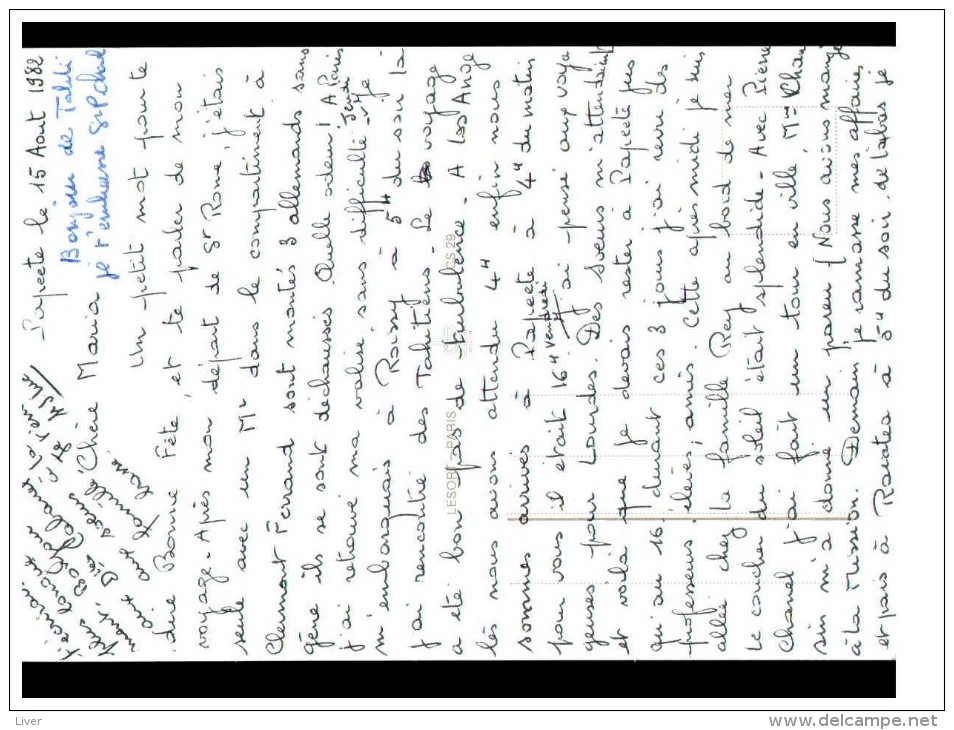 Papeete le 15 Aout 1982
Bonjour de Tahiti
je t'embrasse
Chère Maria
Un petit mot pour te
dire Bonne Fête, et te parler de mon
voyage. Après mon départ de St Rome, j'étais
seule avec un Mr dans le compartiment à
Clermont Ferrand sont montés 3 allemands sans
gêne ils se sont déchaussés Quelle odeur! A Paris
j'ai retrouvé ma valise sans difficulté. Je
m'embarquais à Roissy à 5H du soir là
j'ai rencontré des Tahitiens. Le voyage
a été bon pas de turbulence. A Los Ange
lès nous avions attendu 4H enfin nous
sommes arrivés à Papeete à 4H du matin
pour vous il était 16H vendredi j'ai pensé aux voya
geuses pour Lourdes. Des soeurs m'attendaient
et voilà que je devais rester à Papeete jus
qu'au 16, durant ces 3 jours j'ai revu des
professeurs, élèves, amis. Cette après-midi je suis
allée chez la famille Rey au bord de mer
le coucher du soleil était splendide. Avec Pierre
Chanel j'ai fait un tour en ville, Mme
m'a donné un pareu (Nous avions mangé
à la Mission. Demain je ramasse mes affaires
et pars à Raiatea à 5H du soir. de là bas je
t'écrirai plus longue
ment. Bonjour
aux soeurs
famille
LESORT - PARIS
GS 29
Liver
www.delcampe.net